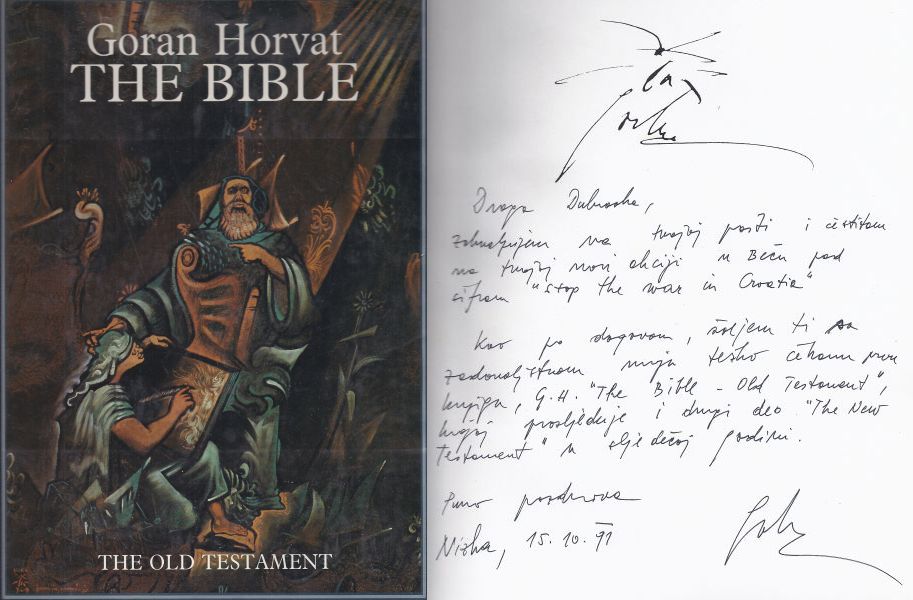 Goran Horvat
THE BIBLE
THE OLD TESTAMENT
Draga Dubravka,
zahvaljujem na tvojoj pošti i čestitam
na tvojoj novi akciji u Beču pod
šifrom "Stop the war in Croatia"
Kao po dogovoru, šaljem ti sa
zadovoljstvom moju teško čekanu prvu
knjigu, G.H. "The Bible - Old Testament",
kojoj prosljeđuje i drugi deo "The New
Testament" u sljedećoj godini.
Puno pozdrava
15.10.91